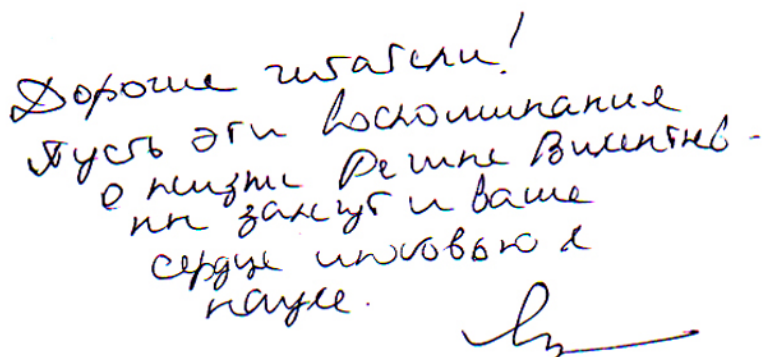 Дорогие читатели!
Пусть эти воспоминания
о жизни Регины Викентьев-
ны зажгут и ваше
сердце любовью к
науке.